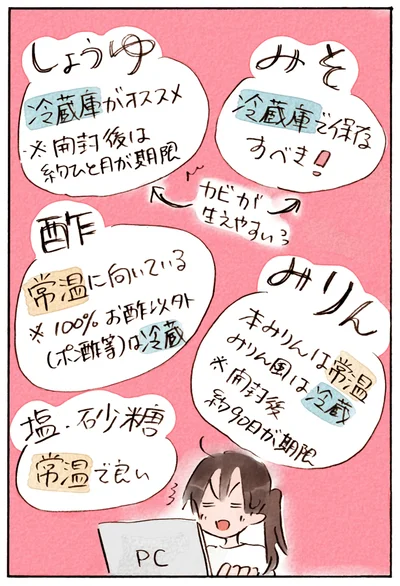 しょうゆ
冷蔵庫がオススメ
※開封後は
約ひと月が期限
みそ
冷蔵庫で保存
すべき!
カビが
生えやすいっ
酢
常温に向いている
※100%お酢以外
(ポン酢等)は冷蔵
みりん
本みりんは常温
みりん風は冷蔵
※開封後
約90日が期限
塩・砂糖
常温で良い
PC